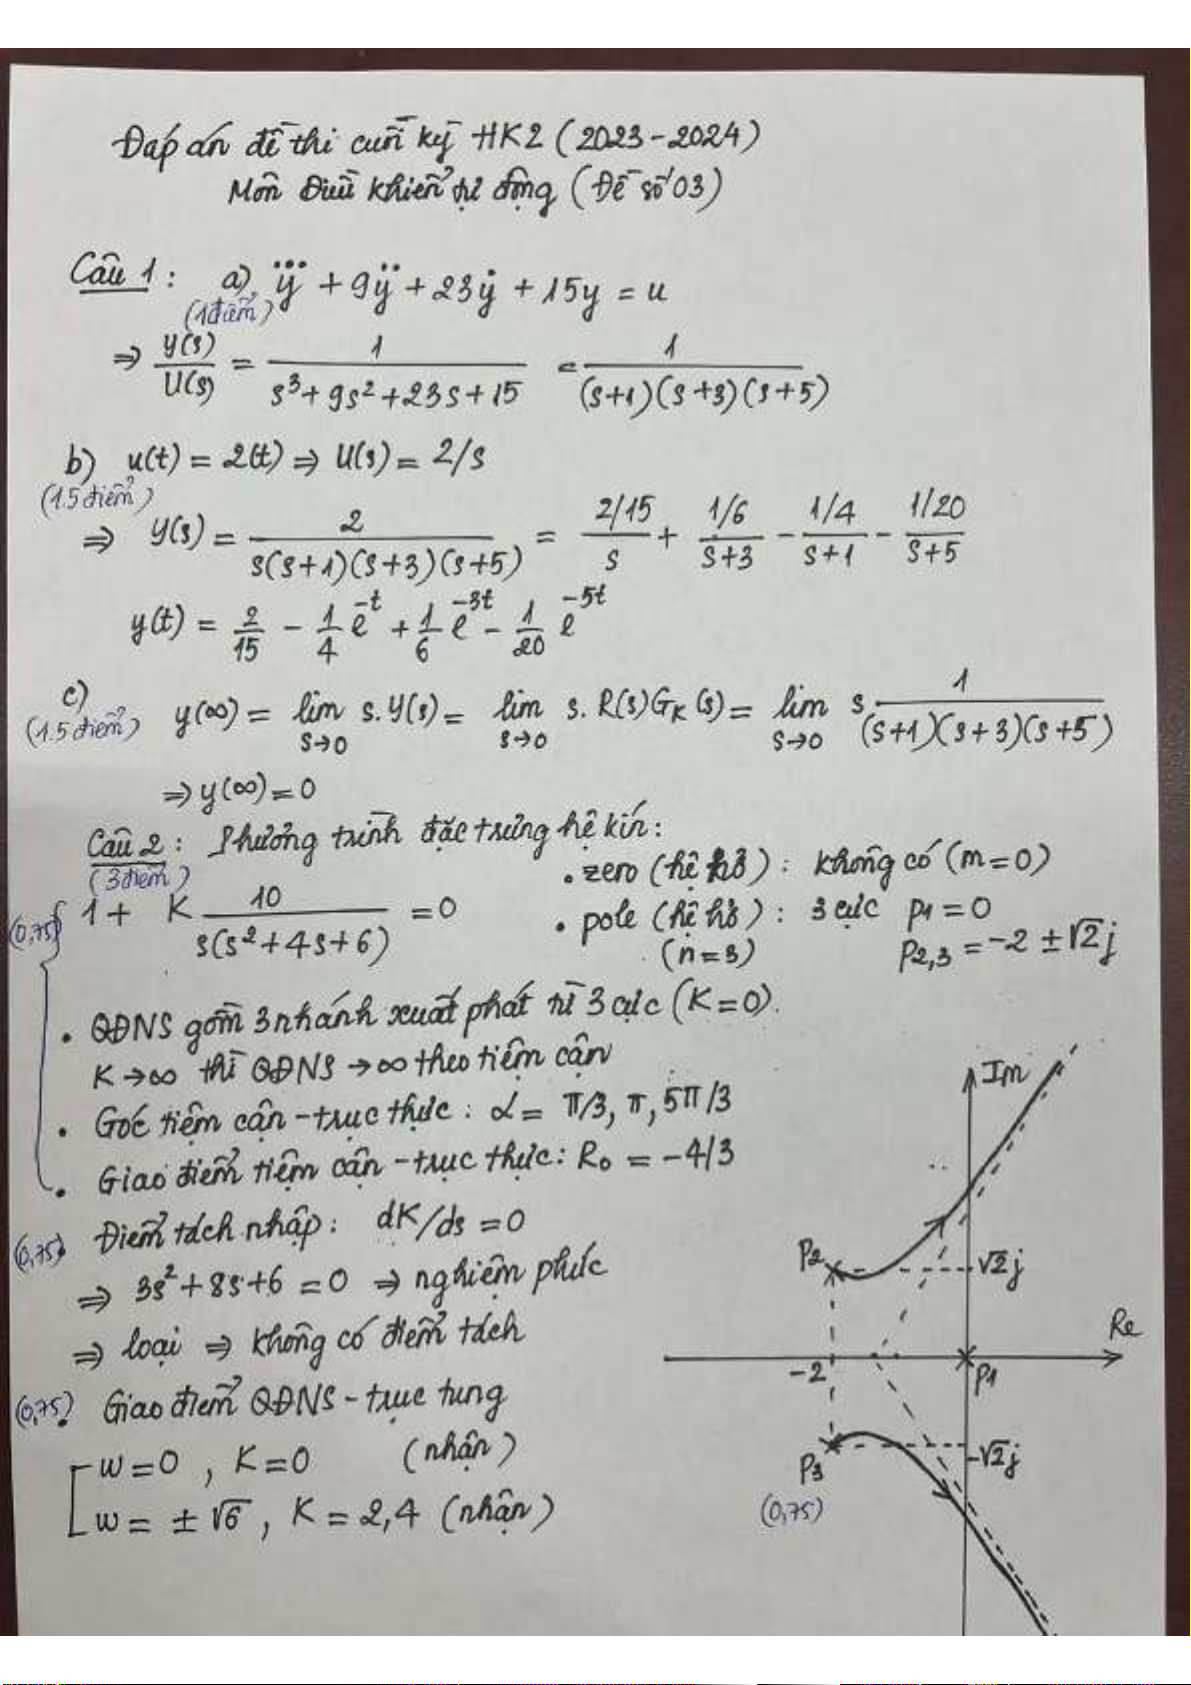 Đáp án đề thi cuối kỳ HK2 (2023-2024)
Môn Điều khiển tự động (Đề số 03)
Câu 1: a) y⃛ + 9ÿ + 23ẏ + 15y = u
(1 điểm)
⇒ Y(s)/U(s) = 1/(s³+9s²+23s+15) = 1/((s+1)(s+3)(s+5))
b) u(t) = 2(t) ⇒ U(s) = 2/s
(1.5 điểm)
⇒ Y(s) = 2/(s(s+1)(s+3)(s+5)) = (2/15)/s + (1/6)/(s+3) - (1/4)/(s+1) - (1/20)/(s+5)
y(t) = 2/15 - 1/4 e^-t + 1/6 e^-3t - 1/20 e^-5t
c) y(∞) = lim s→0 s.Y(s) = lim s→0 s.R(s)G_K(s) = lim s→0 s 1/((s+1)(s+3)(s+5))
(1.5 điểm)
⇒ y(∞) = 0
Câu 2: Phương trình đặc trưng hệ kín:
(3 điểm)
(0,75) 1 + K 10/(s(s²+4s+6)) = 0
• zero (hệ hở): không có (m=0)
• pole (hệ hở): 3 cực p1 = 0
(n=3) P2,3 = -2 ± √2j
• QĐNS gồm 3 nhánh xuất phát từ 3 cực (K=0).
K→∞ thì QĐNS →∞ theo tiệm cận
• Góc tiệm cận - trục thực: α = π/3, π, 5π/3
• Giao điểm tiệm cận - trục thực: R₀ = -4/3
(0,75) Điểm tách nhập: dK/ds = 0
⇒ 3s²+8s+6 = 0 ⇒ nghiệm phức
⇒ loại ⇒ không có điểm tách
(0,75) Giao điểm QĐNS - trục tung
w = 0 , K = 0 (nhận)
w = ± √6 , K = 2,4 (nhận)
Im
P2
√2j
Re
-2
P1
-√2j
P3
(0,75)